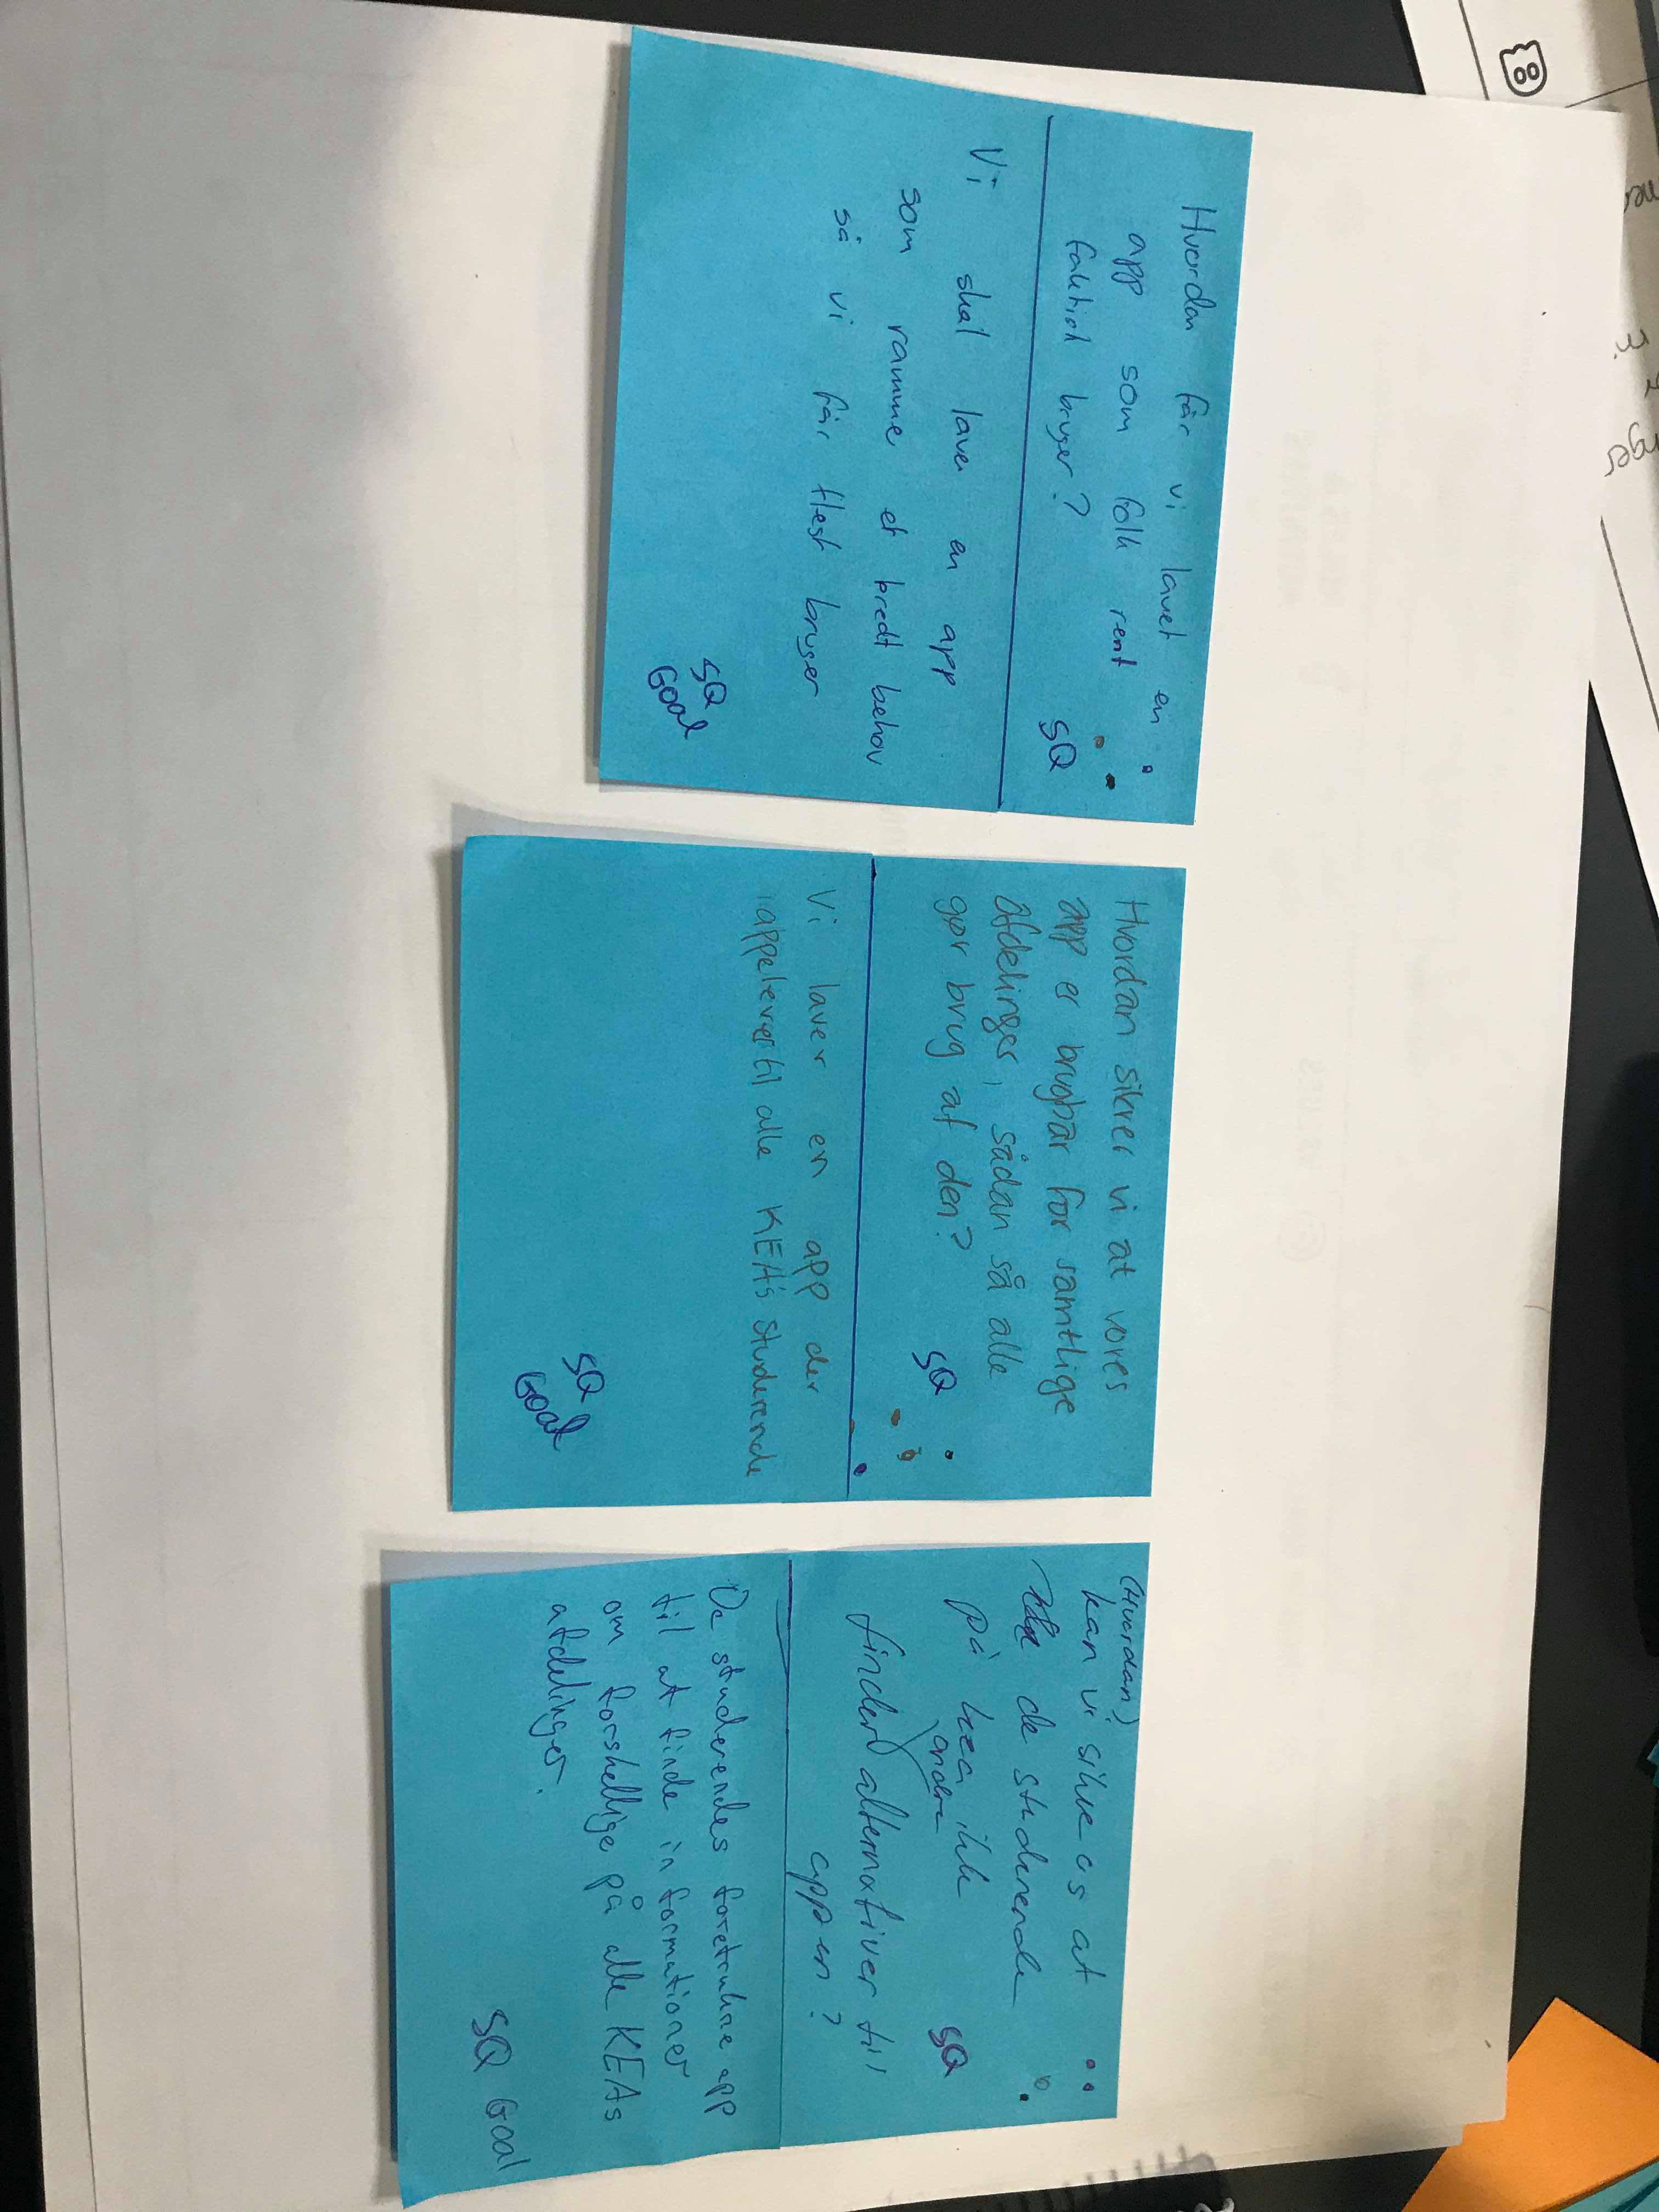 Hvordan får vi lavet en
app som folk rent
faktisk bruger?
SQ
Vi skal lave en app
som ramme et bredt behov
så vi får flest bruger
SQ
Goal
Hvordan sikrer vi at vores
app er brugbar for samtlige
afdelinger, sådan så alle
gør brug af den?
SQ
Vi laver en app der
appelerer til alle KEA's studerende
SQ
Goal
(Hvordan)
kan vi sikre os at
de studerende
på kea ikke
andre
finder alternativer til
appen?
SQ
De studerendes foretrukne app
til at finde informationer
om forskellige på alle KEAs
afdelinger.
SQ Goal